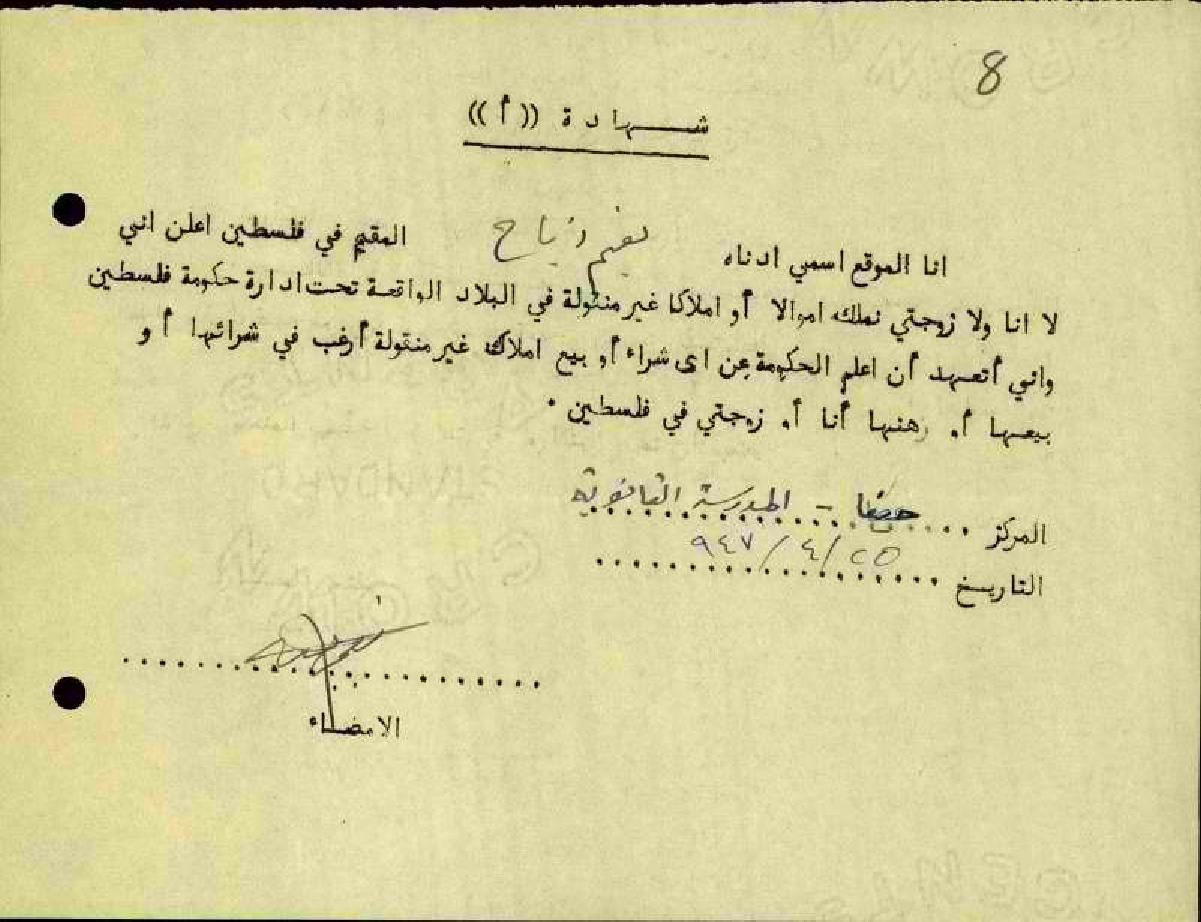 8
شهادة ((أ))
انا الموقع اسمي ادناه نعيم رباح المقيم في فلسطين اعلن اني
لا انا ولا زوجتي نملك اموالا أو املاكا غير منقولة في البلاد الواقعة تحت ادارة حكومة فلسطين
واني أتعهد أن اعلم الحكومة عن اى شراء أو بيع املاك غير منقولة أرغب في شرائها أو
بيعها أو رهنها أنا أو زوجتي في فلسطين .
المركز حيفا - المدرسة الثانوية
التاريخ ٢٥/٤/٩٤٧
الامضاء